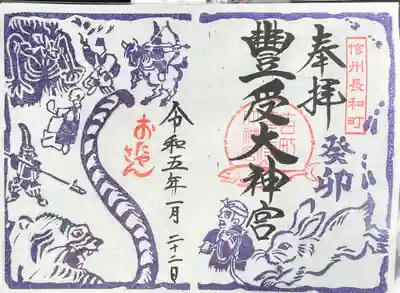 信州長和町
奉拝
癸卯
豊受大神宮
令和五年一月二十二日
おたや
さん